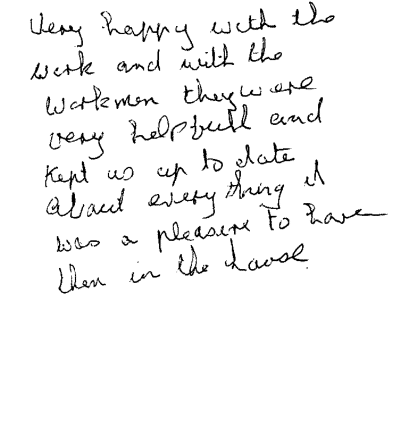 Very happy with the
work and with the
workmen they were
very helpfull and
kept us up to date
about everything it
was a pleasure to have
then in the house.